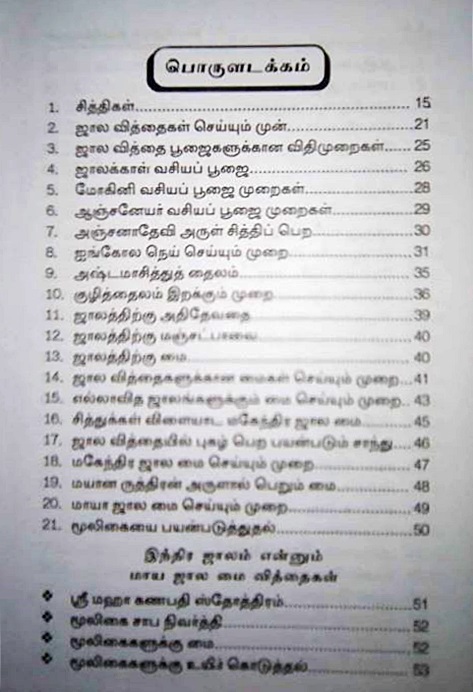 பொருளடக்கம்
1. சித்திகள்................................................ 15
2. ஜால வித்தைகள் செய்யும் முன்........................ 21
3. ஜால வித்தை பூஜைகளுக்கான விதிமுறைகள்...... 25
4. ஜாலக்காள் வசியப் பூஜை............................. 26
5. மோகினி வசியப் பூஜை முறைகள்.................... 28
6. ஆஞ்சனேயர் வசியப் பூஜை முறைகள்................ 29
7. அஞ்சனாதேவி அருள் சித்திப் பெற................... 30
8. ஐங்கோல நெய் செய்யும் முறை....................... 31
9. அஷ்டமாசித்துத் தைலம்............................... 35
10. குழித்தைலம் இறக்கும் முறை......................... 36
11. ஜாலத்திற்கு அதிதேவதை............................. 39
12. ஜாலத்திற்கு மஞ்சட்பாவை........................... 40
13. ஜாலத்திற்கு மை....................................... 40
14. ஜால வித்தைகளுக்கான மைகள் செய்யும் முறை...41
15. எல்லாவித ஜாலங்களுக்கும் மை செய்யும் முறை.. 43
16. சித்துக்கள் விளையாட மகேந்திர ஜால மை......... 45
17. ஜால வித்தையில் புகழ் பெற பயன்படும் சாந்து.... 46
18. மகேந்திர ஜால மை செய்யும் முறை.................. 47
19. மயான ருத்திரன் அருளால் பெறும் மை.............. 48
20. மாயா ஜால மை செய்யும் முறை...................... 49
21. மூலிகையை பயன்படுத்துதல்.......................... 50
இந்திர ஜாலம் என்னும்
மாய ஜால மை வித்தைகள்
❖ ஸ்ரீ மஹா கணபதி ஸ்தோத்திரம்....................... 51
❖ மூலிகை சாப நிவர்த்தி................................. 52
❖ மூலிகைகளுக்கு மை................................... 52
❖ மூலிகைகளுக்கு உயிர் கொடுத்தல்................... 53